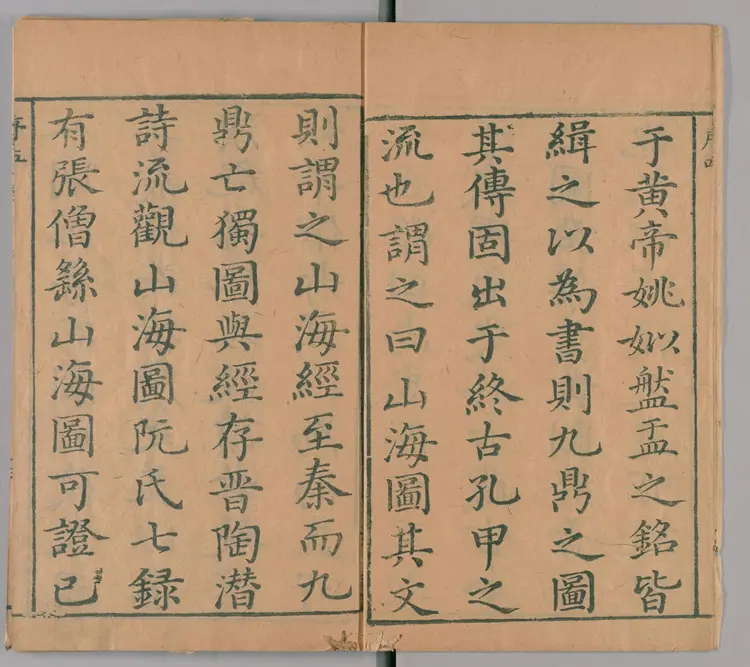 于黄帝姚姒盤盂之銘皆
緝之以為書則九鼎之圖
其傳固出于終古孔甲之
流也謂之曰山海圖其文
則謂之山海經至秦而九
鼎亡獨圖與經存晉陶潜
詩流觀山海圖阮氏七録
有張僧繇山海圖可證已